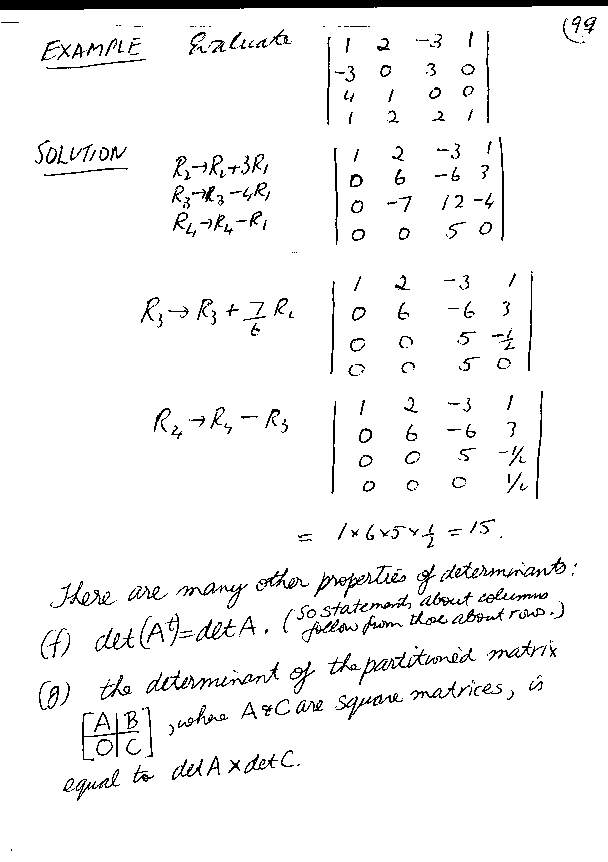 (99
EXAMPLE Evaluate
| 1 2 -3 1 |
| -3 0 3 0 |
| 4 1 0 0 |
| 1 2 2 1 |
SOLUTION
R₂→R₂+3R₁
R₃→R₃-4R₁
R₄→R₄-R₁
| 1 2 -3 1 |
| 0 6 -6 3 |
| 0 -7 12 -4 |
| 0 0 5 0 |
R₃→R₃+7/6 R₂
| 1 2 -3 1 |
| 0 6 -6 3 |
| 0 0 5 -1/2 |
| 0 0 5 0 |
R₄→R₄-R₃
| 1 2 -3 1 |
| 0 6 -6 3 |
| 0 0 5 -1/2 |
| 0 0 0 1/2 |
= 1×6×5×1/2 = 15.
There are many other properties of determinants:
(f) det(Aᵗ)=det A. (So statements about columns
follow from those about rows.)
(g) the determinant of the partitioned matrix
[A|B]
[O|C], where A & C are square matrices, is
equal to det A × det C.